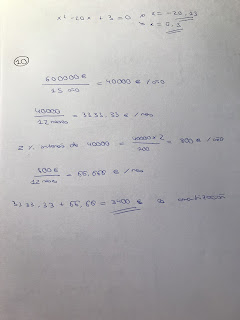 x² - 20x + 3 = 0 → x = -20,33
→ x = 0,3
10
600000€ / 15 año = 40000 € / año
40000 / 12 meses = 3333,33 € / mes
2 % interés de 40000 = 40000 × 2 / 100 = 800 € / año
800€ / 12 meses = 66,666 € / mes
3333,33 + 66,66 = 3400 € →